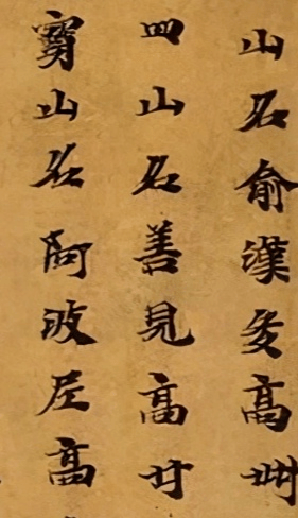 山名俞漢多高卌
四山名善見高廿
寶山名阿波尼高